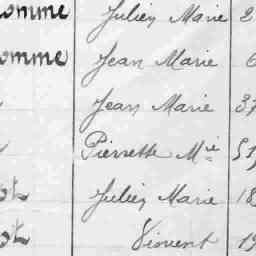 omme Julien Marie 2
omme Jean Marie 6
Jean Marie 37
Pierrette Mie 51
ot Julien Marie 18
ot Vincent 19